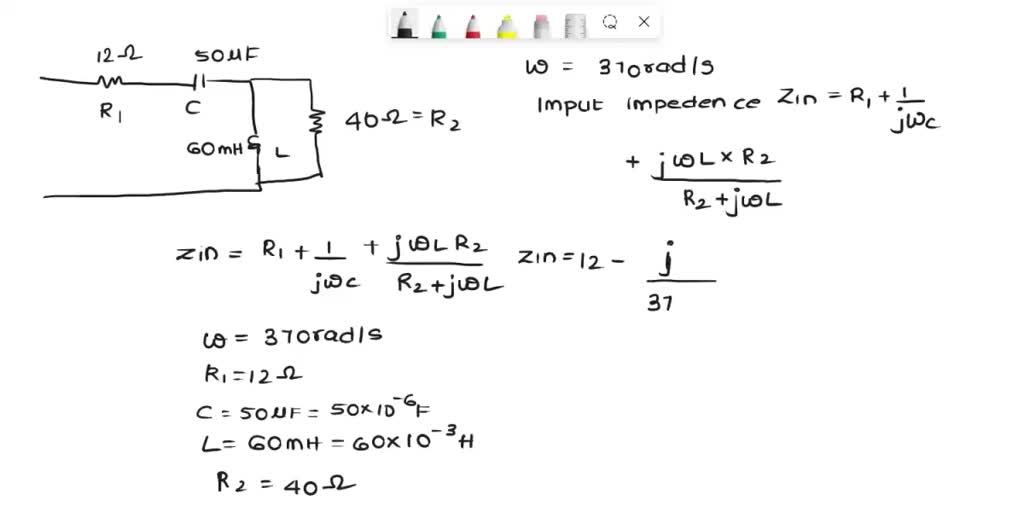 12Ω 50µF
R1 C
60mH L
40Ω = R2
ω = 370rad/s
Imput impedence Zin = R1 + 1/jωc
+ jωL × R2 / R2 + jωL
Zin = R1 + 1/jωc + jωLR2 / R2 + jωL
Zin = 12 - j / 37
ω = 370rad/s
R1 = 12Ω
C = 50µF = 50×10^-6F
L = 60mH = 60×10^-3H
R2 = 40Ω